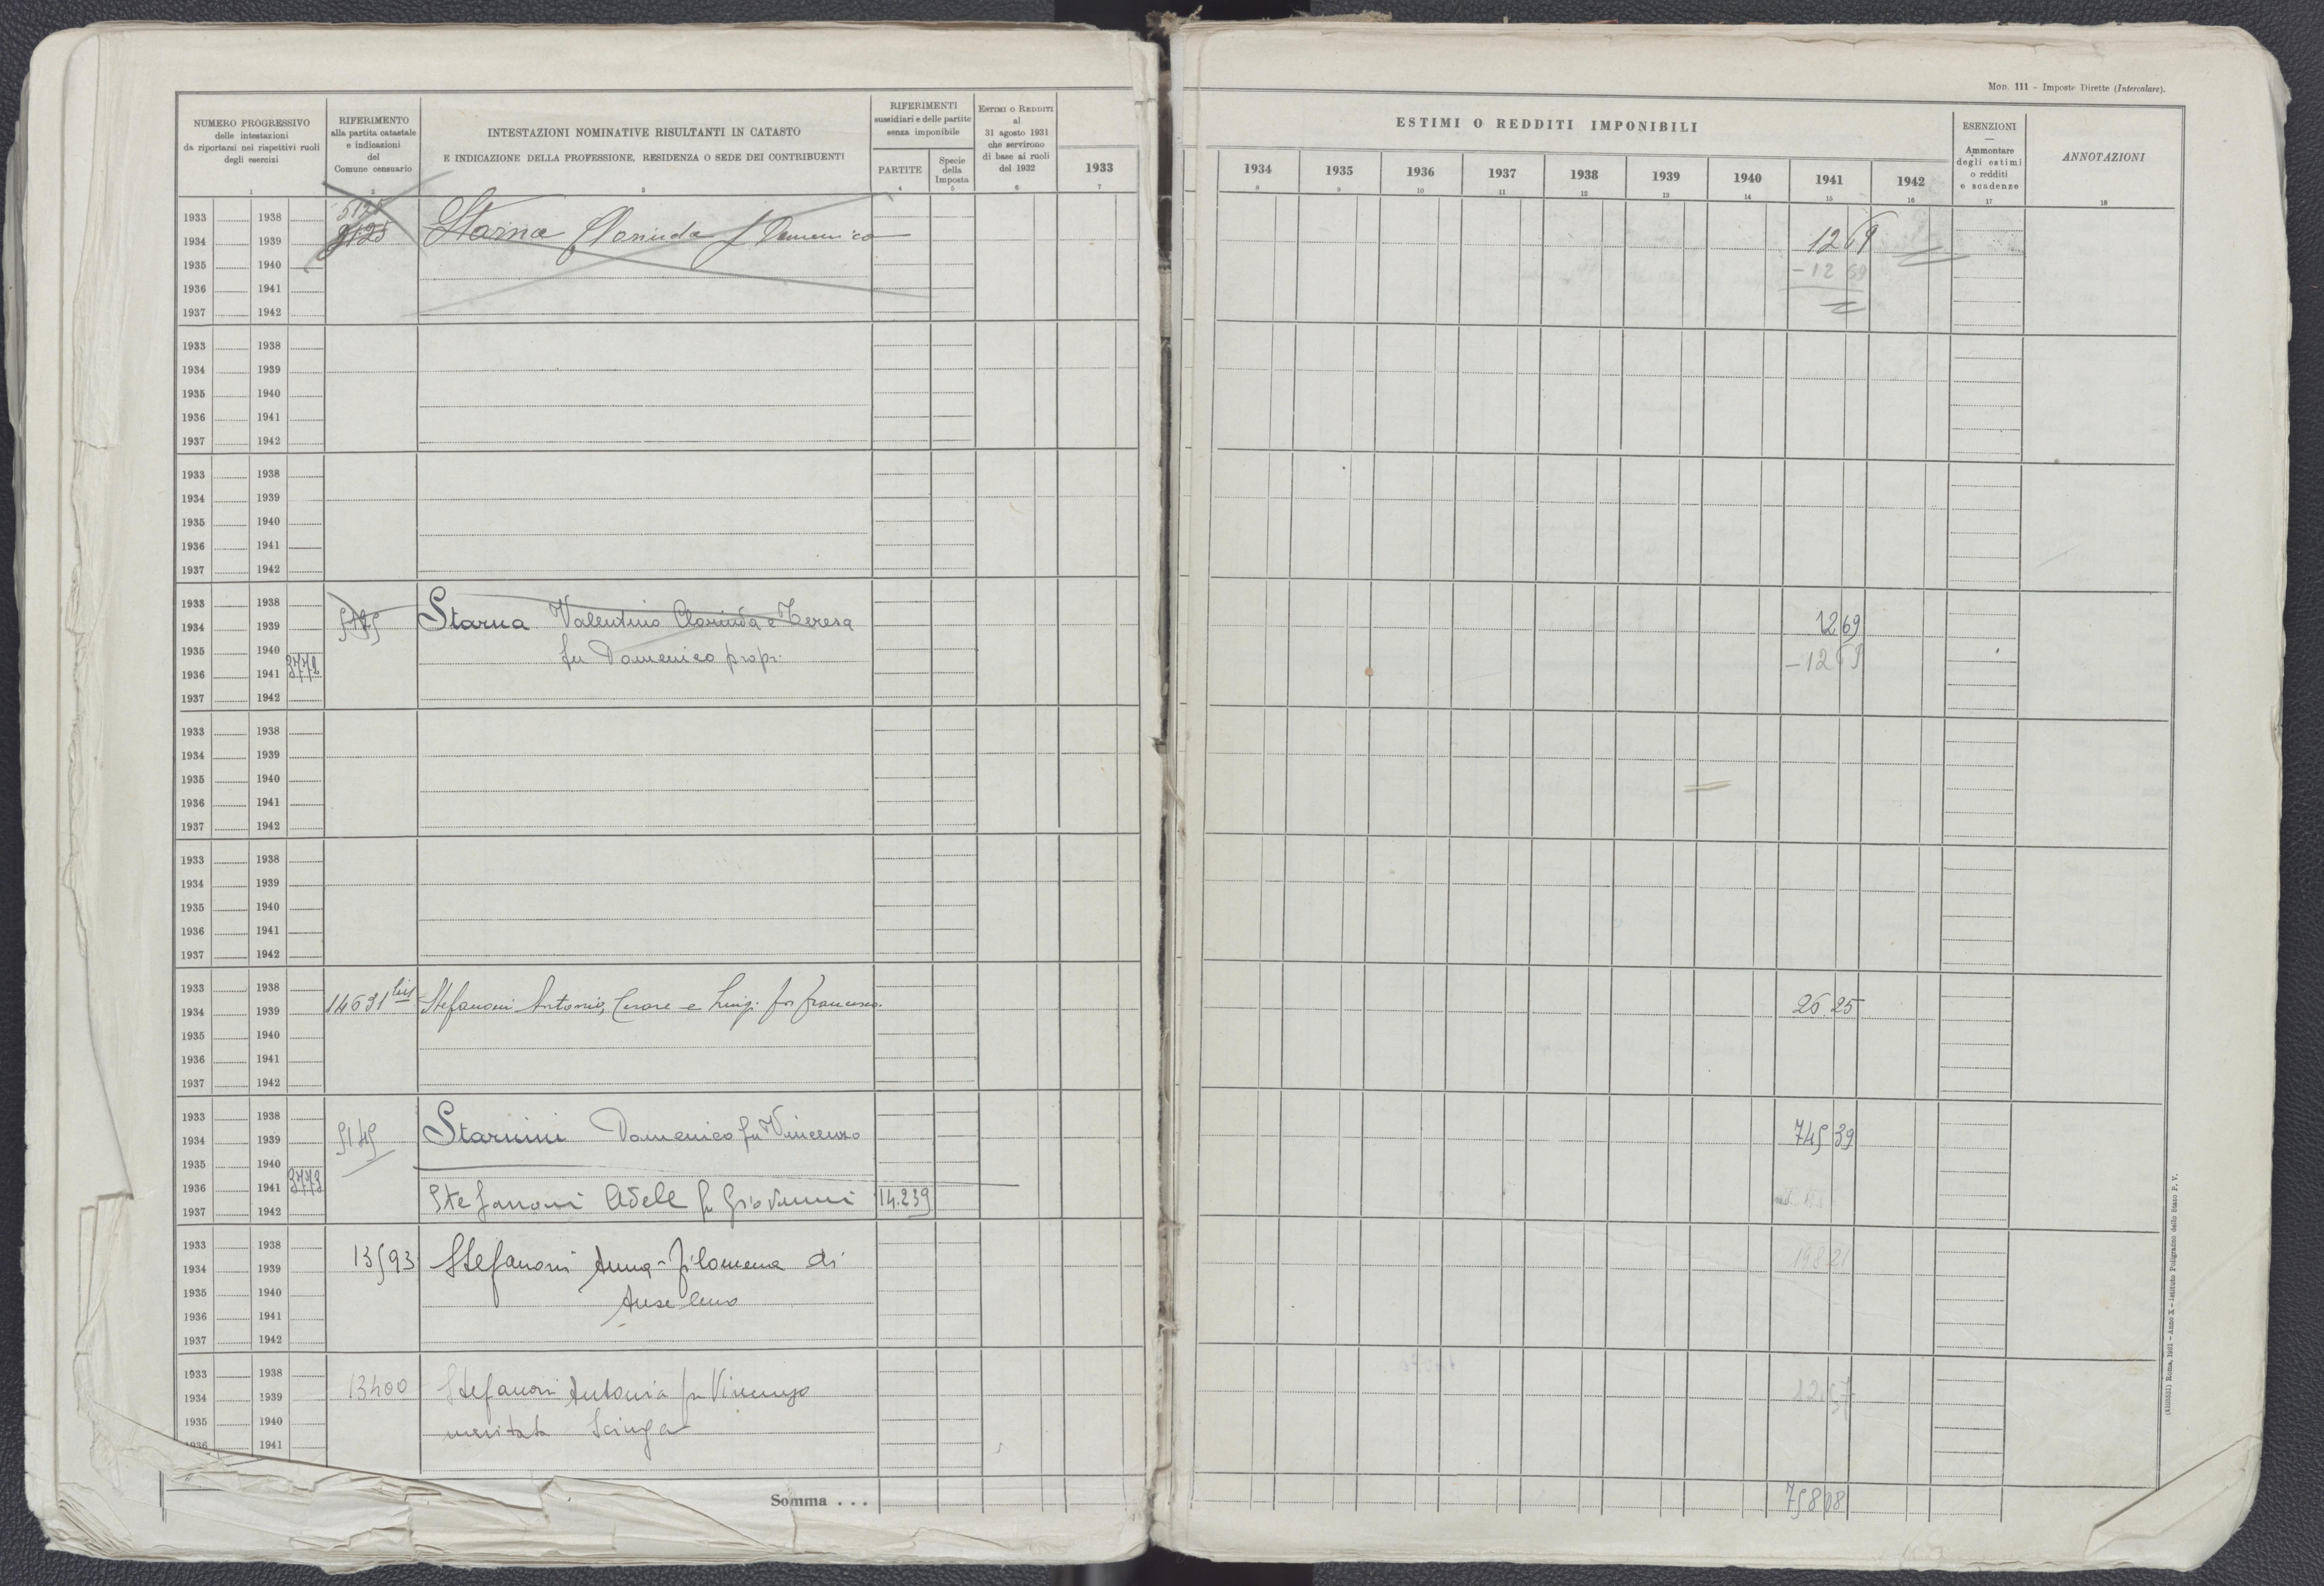 Mod. 111 - Imposte Dirette (Intercalare).
NUMERO PROGRESSIVO
delle intestazioni
da riportarsi nei rispettivi ruoli
degli esercizi
1
RIFERIMENTO
alla partita catastale
e indicazioni
del
Comune censuario
2
INTESTAZIONI NOMINATIVE RISULTANTI IN CATASTO
E INDICAZIONE DELLA PROFESSIONE, RESIDENZA O SEDE DEI CONTRIBUENTI
3
RIFERIMENTI
sussidiari e delle partite
senza imponibile
PARTITE
4
Specie
della
Imposta
5
Estimi o Redditi
al
31 agosto 1931
che servirono
di base ai ruoli
del 1932
6
1933
7
ESTIMI O REDDITI IMPONIBILI
1934 1935 1936 1937 1938 1939 1940 1941 1942
8 9 10 11 12 13 14 15 16
ESENZIONI
—
Ammontare
degli estimi
o redditi
e scadenze
17
ANNOTAZIONI
18
1933 1938
1934 1939 5125 Starna Clorinda f Domenico 12 69
1935 1940 - 12 69
1936 1941
1937 1942
1933 1938
1934 1939
1935 1940
1936 1941
1937 1942
1933 1938
1934 1939
1935 1940
1936 1941
1937 1942
1933 1938
1934 1939 Starna Valentino Clorinda e Teresa 12 69
1935 1940 fu Domenico propr. - 12 69
1936 1941 3772
1937 1942
1933 1938
1934 1939
1935 1940
1936 1941
1937 1942
1933 1938
1934 1939
1935 1940
1936 1941
1937 1942
1933 1938
1934 1939 14691 bis Stefanoni Antonio, Cesare e Luigi fu Francesco 26 25
1935 1940
1936 1941
1937 1942
1933 1938
1934 1939 5145 Starnini Domenico fu Vincenzo 745 39
1935 1940
1936 1941 3773
1937 1942 Stefanoni Adele fu Giovanni 14.239
1933 1938
1934 1939 13593 Stefanoni Anna-Filomena di 198 21
1935 1940 Anselmo
1936 1941
1937 1942
1933 1938
1934 1939 13400 Stefanoni Antonia fu Vincenzo
1935 1940 maritata
1936 1941
Somma . . . 758 08
(4103531) Roma, 1931 - Anno X - Istituto Poligrafico dello Stato P. V.